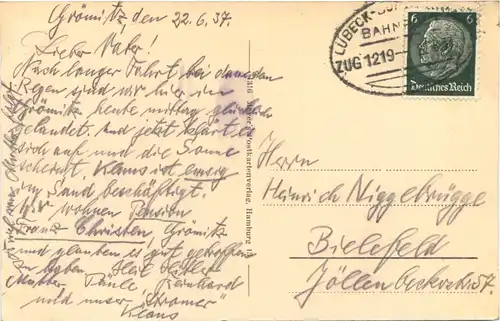 Grömitz den 22.6.37.
Lieber Vater!
Nach langer Fahrt, bei
Regen sind wir hier in
Grömitz heute mittag glücklich
gelandet. Und jetzt klärt es
sich auf und die Sonne
scheint. Klaus ist emsig
im Sand beschäftigt.
Wir wohnen Pension
Franz Christen, Grömitz
und glauben es gut getroffen
zu haben. Heil Hitler
Mutter, Reinhard
und unser "Stromer"
Klaus
Postkartenverlag, Hamburg
LÜBECK-
BAHNP
ZUG 1219
6 6
Deutsches Reich
Herrn
Heinrich Niggebrügge
Bielefeld
Jöllenbeckerstr. 57.